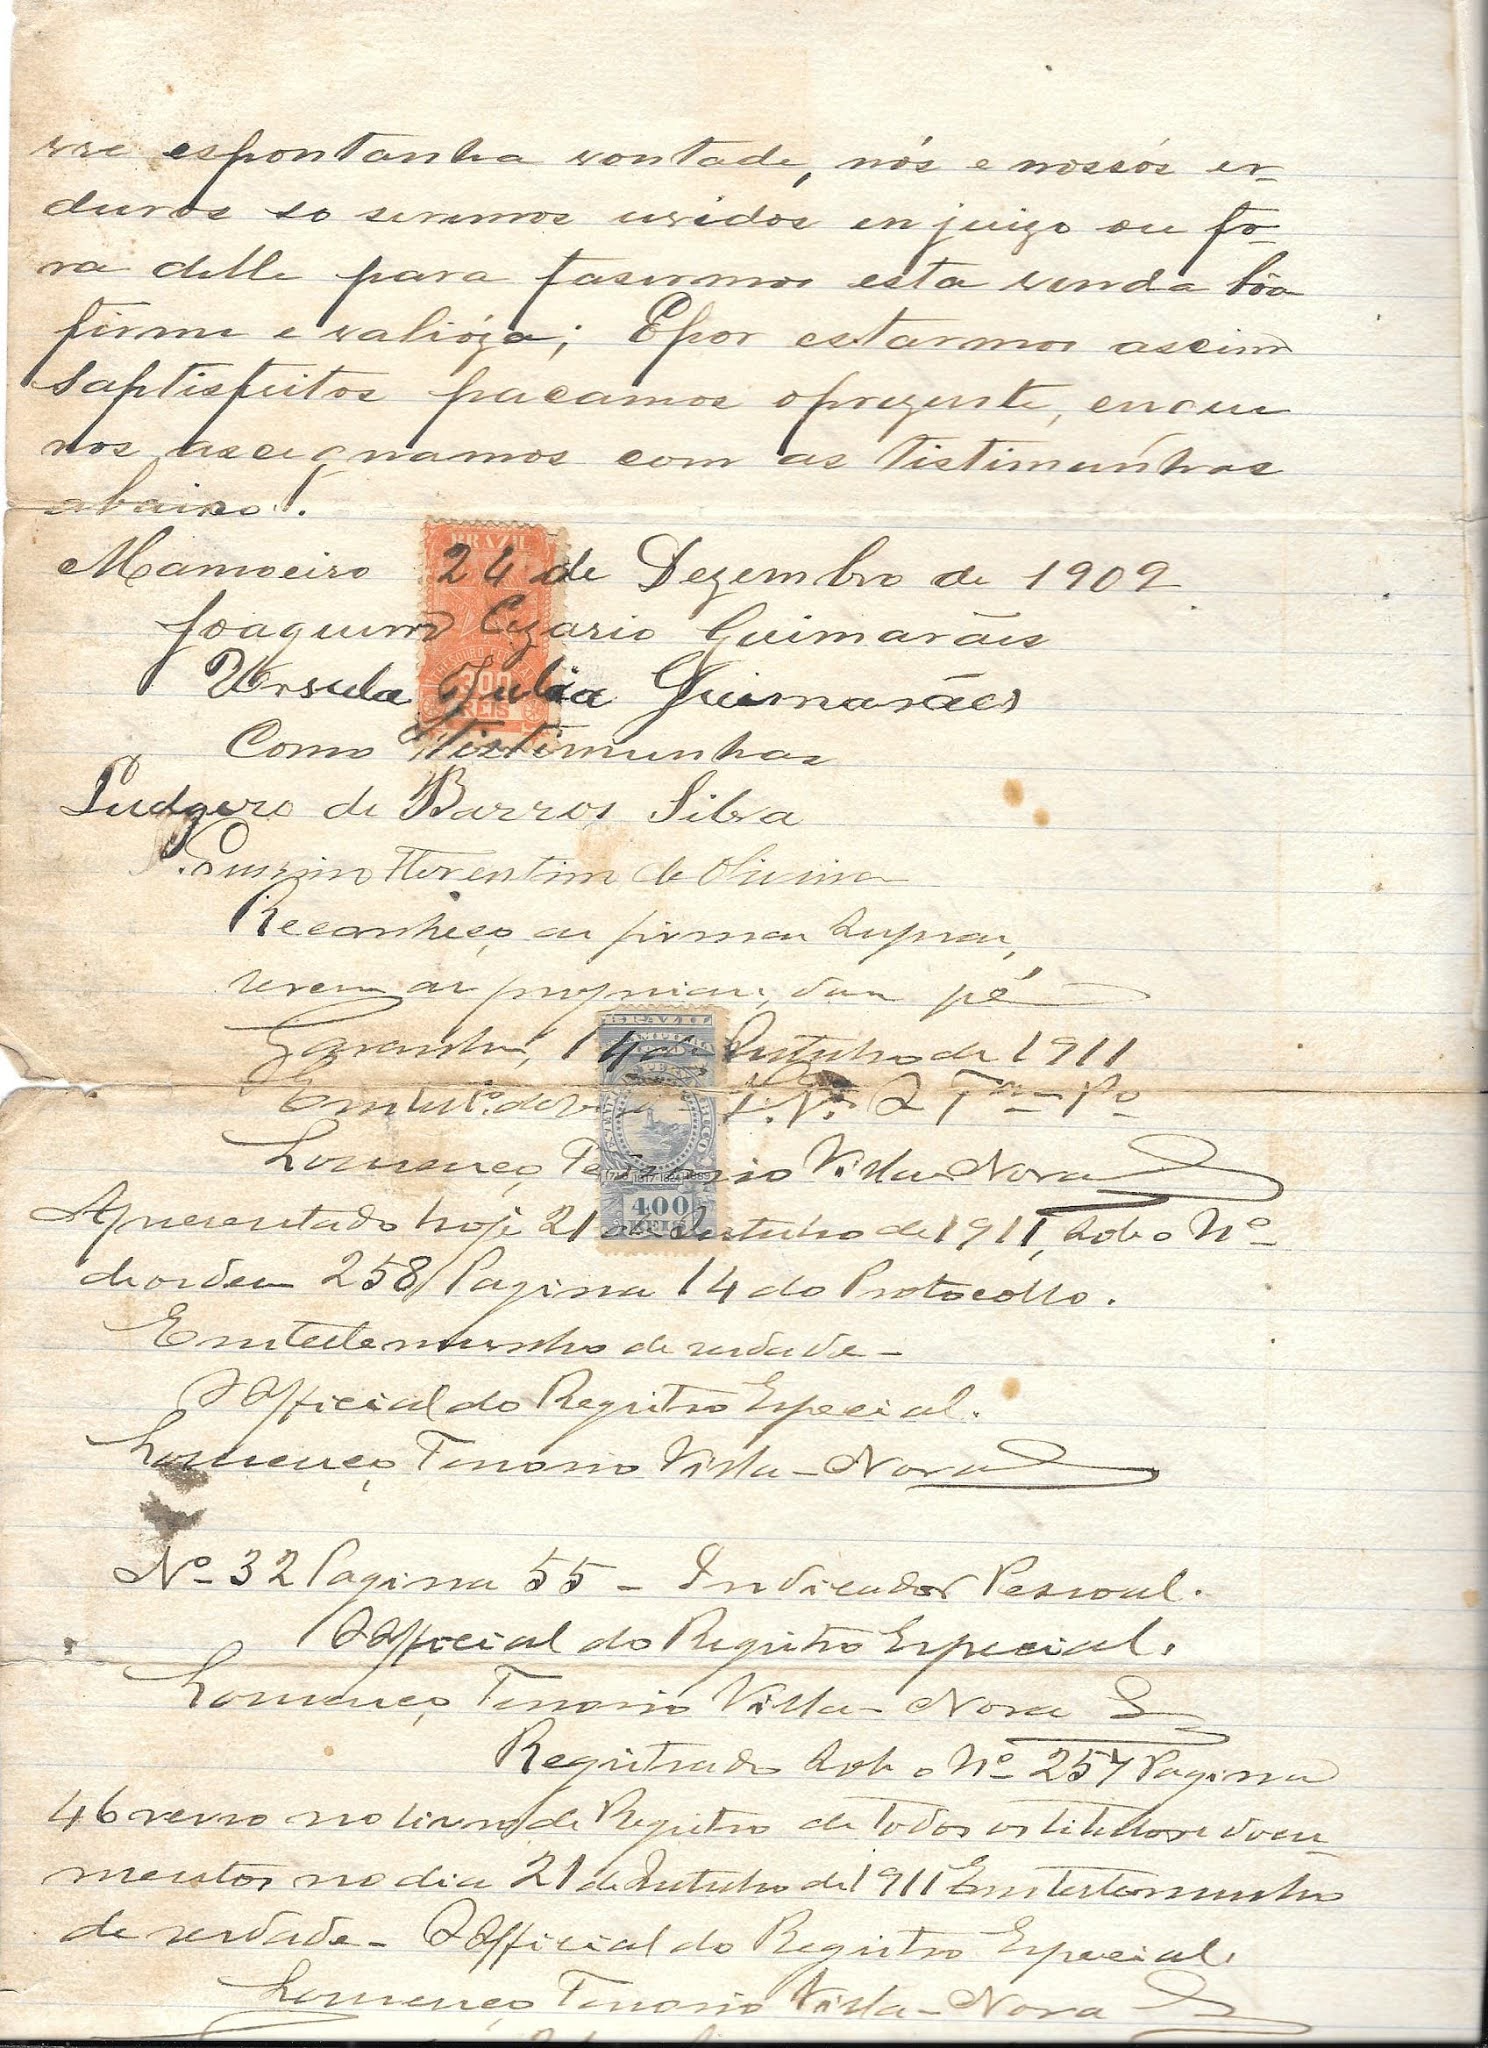 vre espontanha vontade, nós e nossós er-
duros so seremos uvidos en juizo ou fo-
ra delle para fasermos esta venda bôa
firme e valióza; Epor estarmos ascim
saptisfeitos pacamos oprezente, enque
nos ascignamos com as tistimunhas
abaixo.
BRAZIL
Mamoeiro 24 de Dezembro de 1909
Joaquim Cezario Guimarães
Ursula Julia Guimarães
300
REIS
Como tistimunhas
Ludgero de Barros Silva
Florentino de Oliveira
Reconheço as firmas supras,
serem as proprias, dou fé
Garanhuns, 14 de Outubro de 1911
Em testº. de v
Lourenço Tenorio Villa-Nova
1710 1817-1824 1889
400
REIS
Apresentado hoje 21 de Outubro de 1911, sob o Nº
de ordem 258 Pagina 14 do Protocollo.
Em testemunho de verdade-
O Official do Registro Especial.
Lourenço Tenorio Villa-Nova
Nº 32 Pagina 55 - Indicador Pessoal.
O Official do Registro Especial.
Lourenço Tenorio Villa-Nova
Registrado sob o Nº 257 Pagina
46 verso no livro de Registro de todos os titulos e docu-
mentos no dia 21 de Outubro de 1911 Em testemunho
de verdade- O Official do Registro Especial.
Lourenço Tenorio Villa-Nova